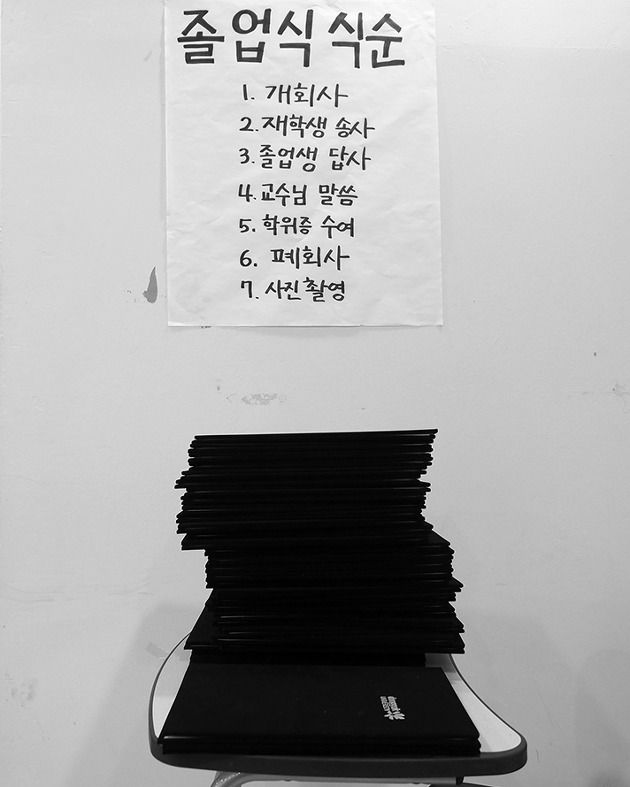 졸업식 식순
1. 개회사
2. 재학생 송사
3. 졸업생 답사
4. 교수님 말씀
5. 학위증 수여
6. 폐회사
7. 사진 촬영